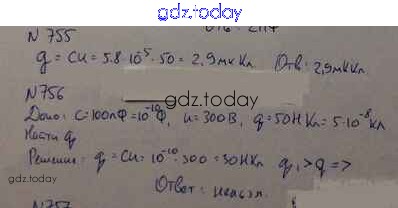 gdz.today
N 755
q = CU = 5.8·10⁻⁵·50 = 2,9 мк Кл Отв: 2,9 мк Кл
N 756
gdz.today
Дано: C=100пФ=10⁻¹⁰Ф, u=300В, q=50НКл=5·10⁻⁸Кл
Найти q₁
Решение: q₁=CU=10⁻¹⁰·300=30НКл q₁>q =>
gdz.today
Ответ: нельзя.
N 757